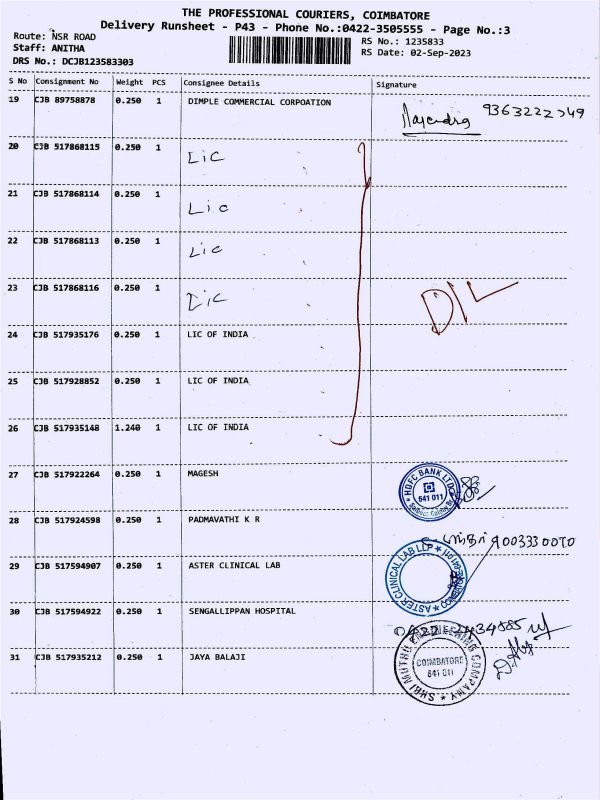 THE PROFESSIONAL COURIERS, COIMBATORE
Delivery Runsheet - P43 - Phone No.:0422-3505555 - Page No.:3
Route: NSR ROAD
Staff: ANITHA
DRS No.: DCJB123583303
RS No.: 1235833
RS Date: 02-Sep-2023
S No Consignment No Weight PCS Consignee Details Signature
19 CJB 89758878 0.250 1 DIMPLE COMMERCIAL CORPOATION
Rajendra 9363222749
20 CJB 517868115 0.250 1 LIC
21 CJB 517868114 0.250 1 Lic
22 CJB 517868113 0.250 1 Lic
23 CJB 517868116 0.250 1 Lic
24 CJB 517935176 0.250 1 LIC OF INDIA
25 CJB 517928852 0.250 1 LIC OF INDIA
26 CJB 517935148 1.240 1 LIC OF INDIA
27 CJB 517922264 0.250 1 MAGESH
HDFC BANK LTD
641 011
28 CJB 517924598 0.250 1 PADMAVATHI K R
9003330070
29 CJB 517594907 0.250 1 ASTER CLINICAL LAB
ASTER CLINICAL LAB LLP
30 CJB 517594922 0.250 1 SENGALLIPPAN HOSPITAL
0422 2434885
31 CJB 517935212 0.250 1 JAYA BALAJI
SHRI MUTHU ENGINEERING COMPANY
COIMBATORE
641 011